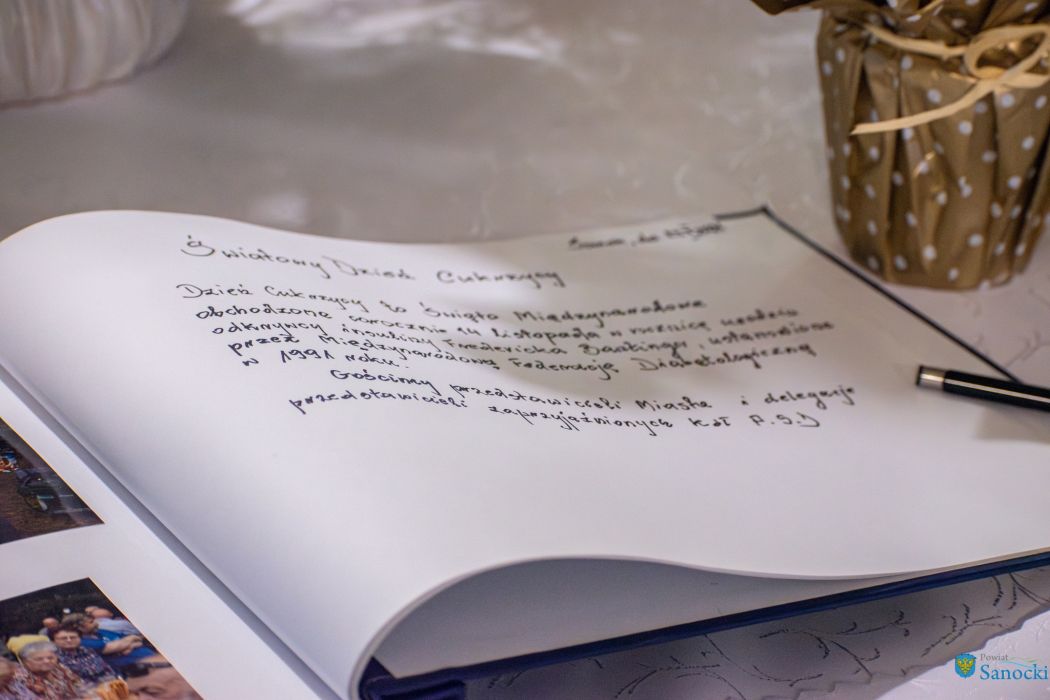 Światowy Dzień Cukrzycy
Dzień Cukrzycy to Święto Międzynarodowe
obchodzone corocznie 14 listopada w rocznicę urodzin
odkrywcy insuliny Fredricka Bantingu, ustanowione
przez Międzynarodową Federację Diabetologiczną
w 1991 roku.
Gościmy przedstawicieli Miasta i delegacje
przedstawicieli zaprzyjaźnionych Kół P.S.D
Powiat
Sanocki